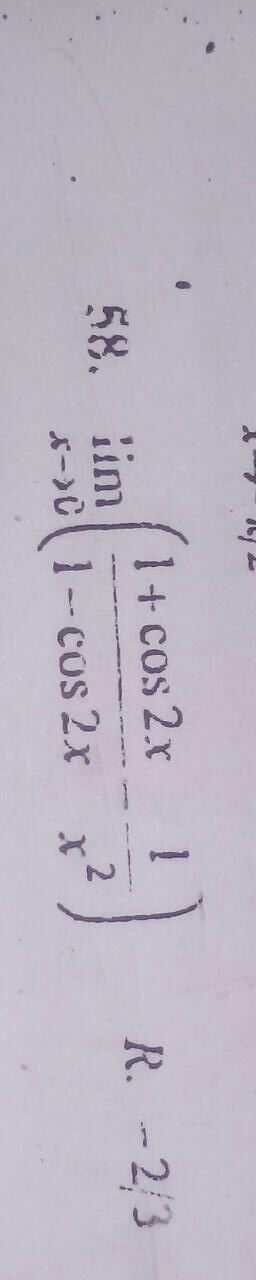 58. lim x→0 ( (1 + cos 2x)/(1 − cos 2x) − 1/x² ) R. −2/3